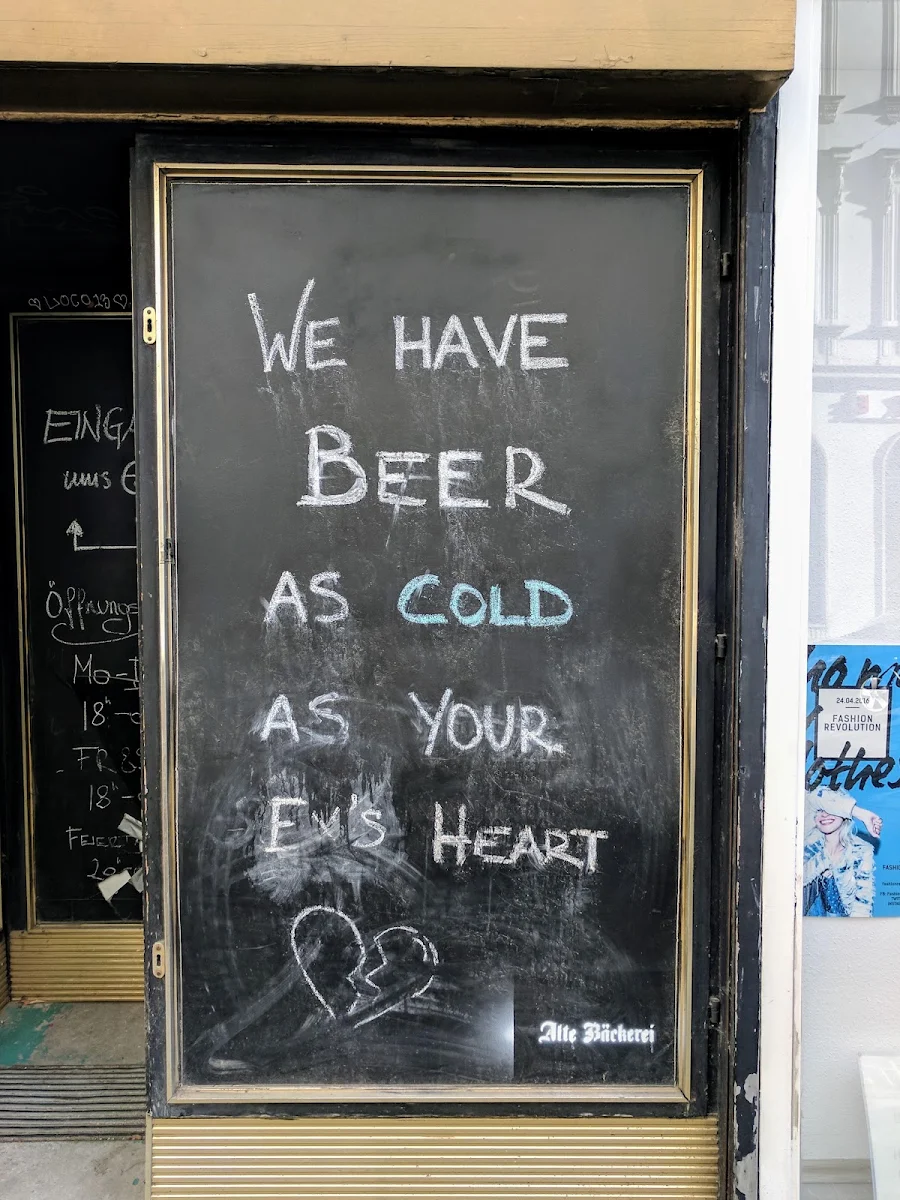 WE HAVE
BEER
AS COLD
AS YOUR
Ex's HEART
Alte Bäckerei
♡LOCO23♡
EINGA
ums E
Öffnungs
Mo-
18h-
FR &
18h-
FEIERT
20h
24.04.2016
FASHION
REVOLUTION